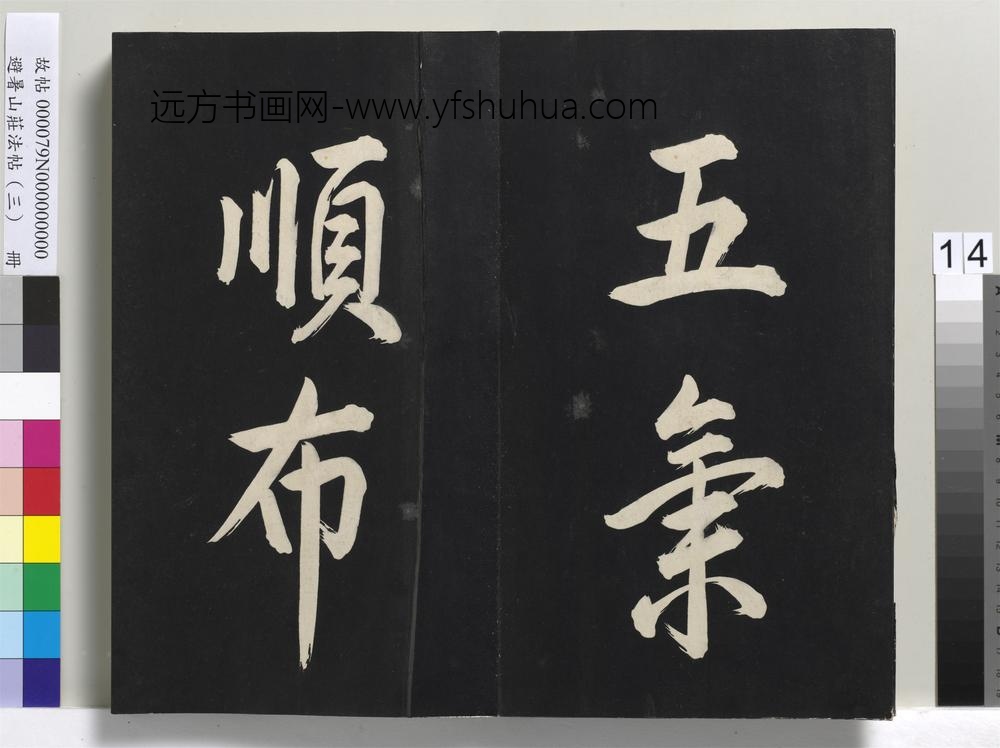 五氣
順布
远方书画网-www.yfshuhua.com
故帖 000079N000000000
避暑山莊法帖(三) 冊
14